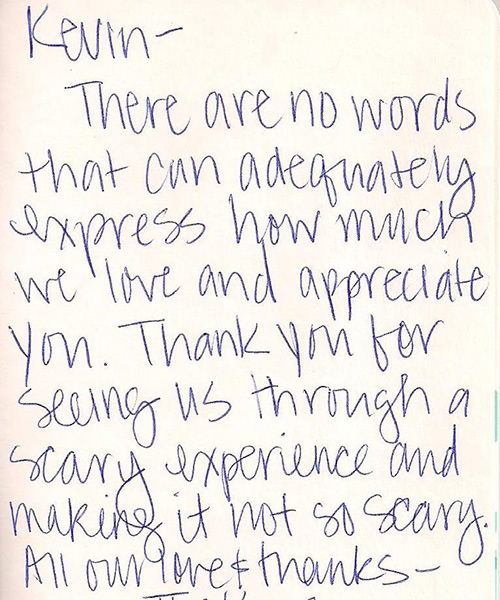 Kevin-
There are no words
that can adequately
express how much
we love and appreciate
you. Thank you for
seeing us through a
scary experience and
making it not so scary.
All our love & thanks-